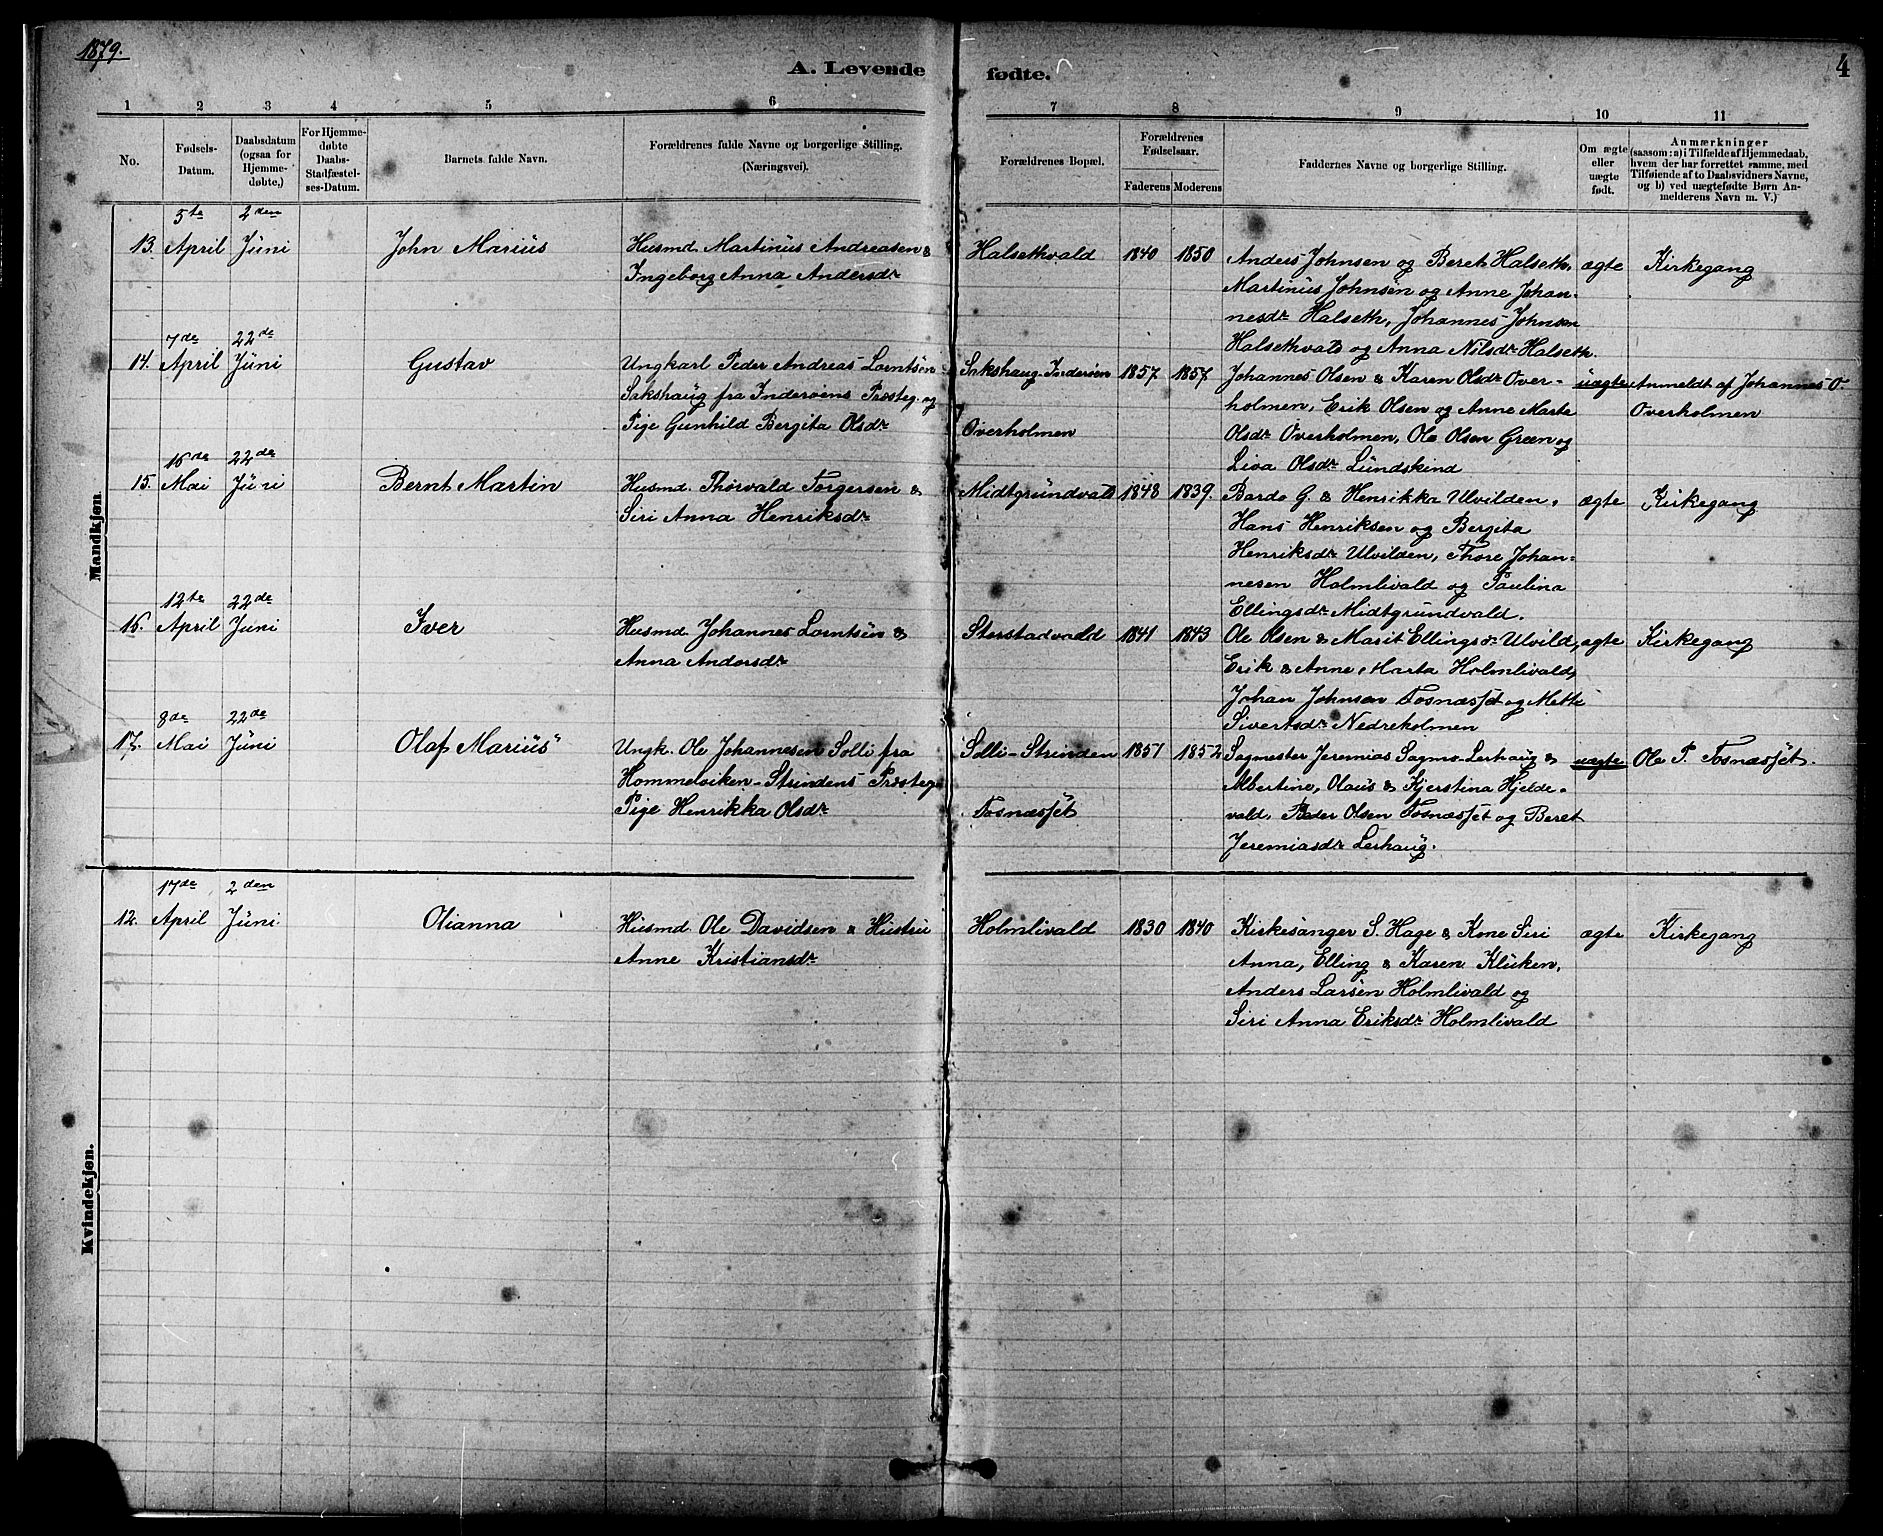 1879.
A. Levende fødte. 4
1 2 3 4 5 6 7 8 9 10 11
No.
Fødsels-
Datum.
Daabsdatum
(ogsaa for
Hjemme-
døbte,)
For Hjemme-
døbte
Daabs-
Stadfæstel-
ses-Datum.
Barnets fulde Navn.
Forældrenes fulde Navne og borgerlige Stilling.
(Næringsvei).
Forældrenes Bopæl.
Forældrenes
Fødselsaar.
Faderens Moderens
Faddernes Navne og borgerlige Stilling.
Om ægte
eller
uægte
født.
Anmærkninger
(saasom: a) i Tilfælde af Hjemmedaab,
hvem der har forrettet samme, med
Tilføiende af to Daabsvidners Navne,
og b) ved uægtefødte Børn An-
melderens Navn m. V.)
Mandkjøn.
5te 2den
13. April Juni John Marius Husmd Martinus Andreasen & Halsethvald 1840 1850 Anders Johnsen og Beret Halseth, ægte Kirkegang
Ingeborg Anna Andersdr Martinus Johnsen og Anne Johan-
nesdr Halseth, Johannes Johnsen
Halsethvald og Anna Nilsdr Halseth.
7de 22de
14. April Juni Gustav Ungkarl Peder Andreas Lorntsen Sakshaug-Inderøen 1857 1857 Johannes Olsen & Karen Olsdr Over- uægte Anmeldt af Johannes O.
Sakshaug fra Inderøens Præsteg. og holmen, Erik Olsen og Anne Marte Overholmen
Pige Gunhild Bergita Olsdr Overholmen Olsdr Overholmen, Ole Olsen Green og
Liva Olsdr Lundskind
16de 22de
15. Mai Juni Bernt Martin Husmd. Thorvald Torgersen & Midtgrundvald 1848 1839. Bardo G. & Henrikka Ulvilden, ægte Kirkegang
Siri Anna Henriksdr Hans Henriksen og Bergita
Henriksdr Ulvilden, Thore Johan-
nesen Holmlivald og Paulina
Ellingsdr Midtgrundvald.
12te 22de
16. April Juni Iver Husmd Johannes Lorntsen & Storstadvald 1841 1843 Ole Olsen & Marit Ellingsdr Ulvild, ægte Kirkegang
Anna Andersdr Erik & Anne Marta Holmlivald,
Johan Johnsen Fosnæsset og Mette
Sivertsdr Nedreholmen
8de 22de
17. Mai Juni Olaf Marius Ungk. Ole Johannesen Solli fra Solli-Strinden 1851 1852 Sagmester Jeremias Sagmo-Lerhaug & uægte Ole P. Fosnæsset.
Hommelviken-Strindens Præsteg Albertine, Olaus & Kjerstina Hjelde-
Pige Henrikka Olsdr Fosnæsset vald, Peder Olsen Fosnæsset og Beret
Jeremiasdr Lerhaug.
Kvindekjøn.
17de 2den
12. April Juni Olianna Husmd Ole Davidsen & Hustru Holmlivald 1830 1840 Kirkesanger S. Hage & Kone Siri ægte Kirkegang
Anne Kristiansdr Anna, Elling & Karen Kluken,
Anders Larsen Holmlivald og
Siri Anna Eriksdr Holmlivald